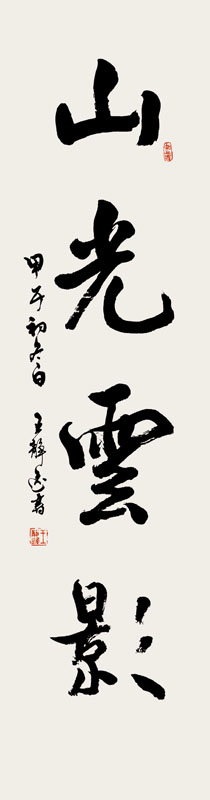 山光雲影
甲午初冬日 王靜書